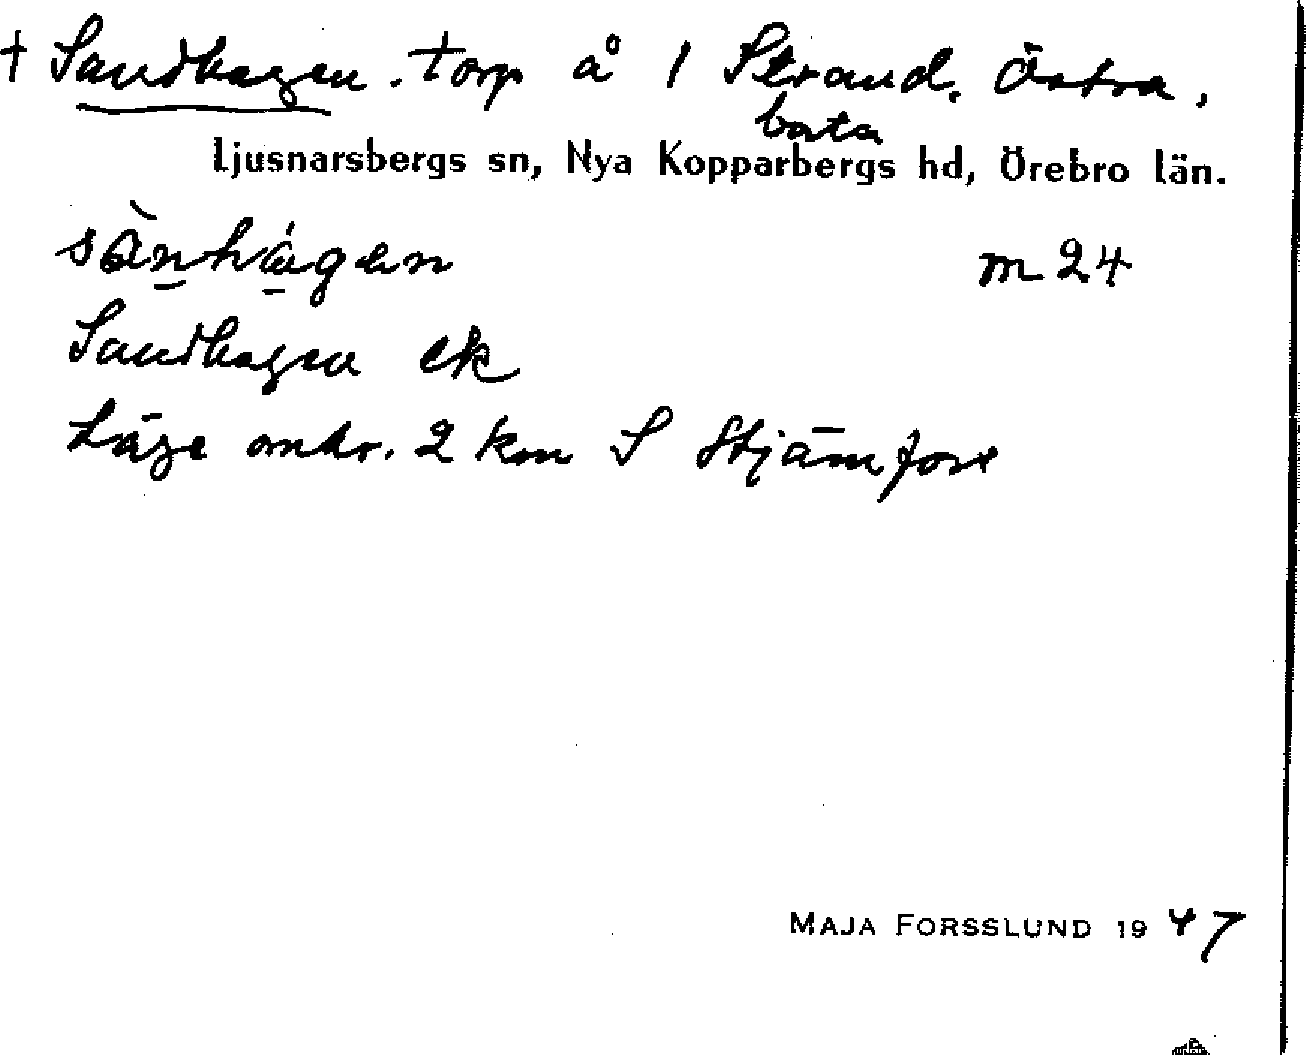 † Sandhagen. torp å 1 Strand, Östra,
borta
Ljusnarsbergs sn, Nya Kopparbergs hd, Örebro län.
sànhágen m 24
Sandhagen ek
Läge omkr. 2 km S Stjärnfors
MAJA FORSSLUND 19 47